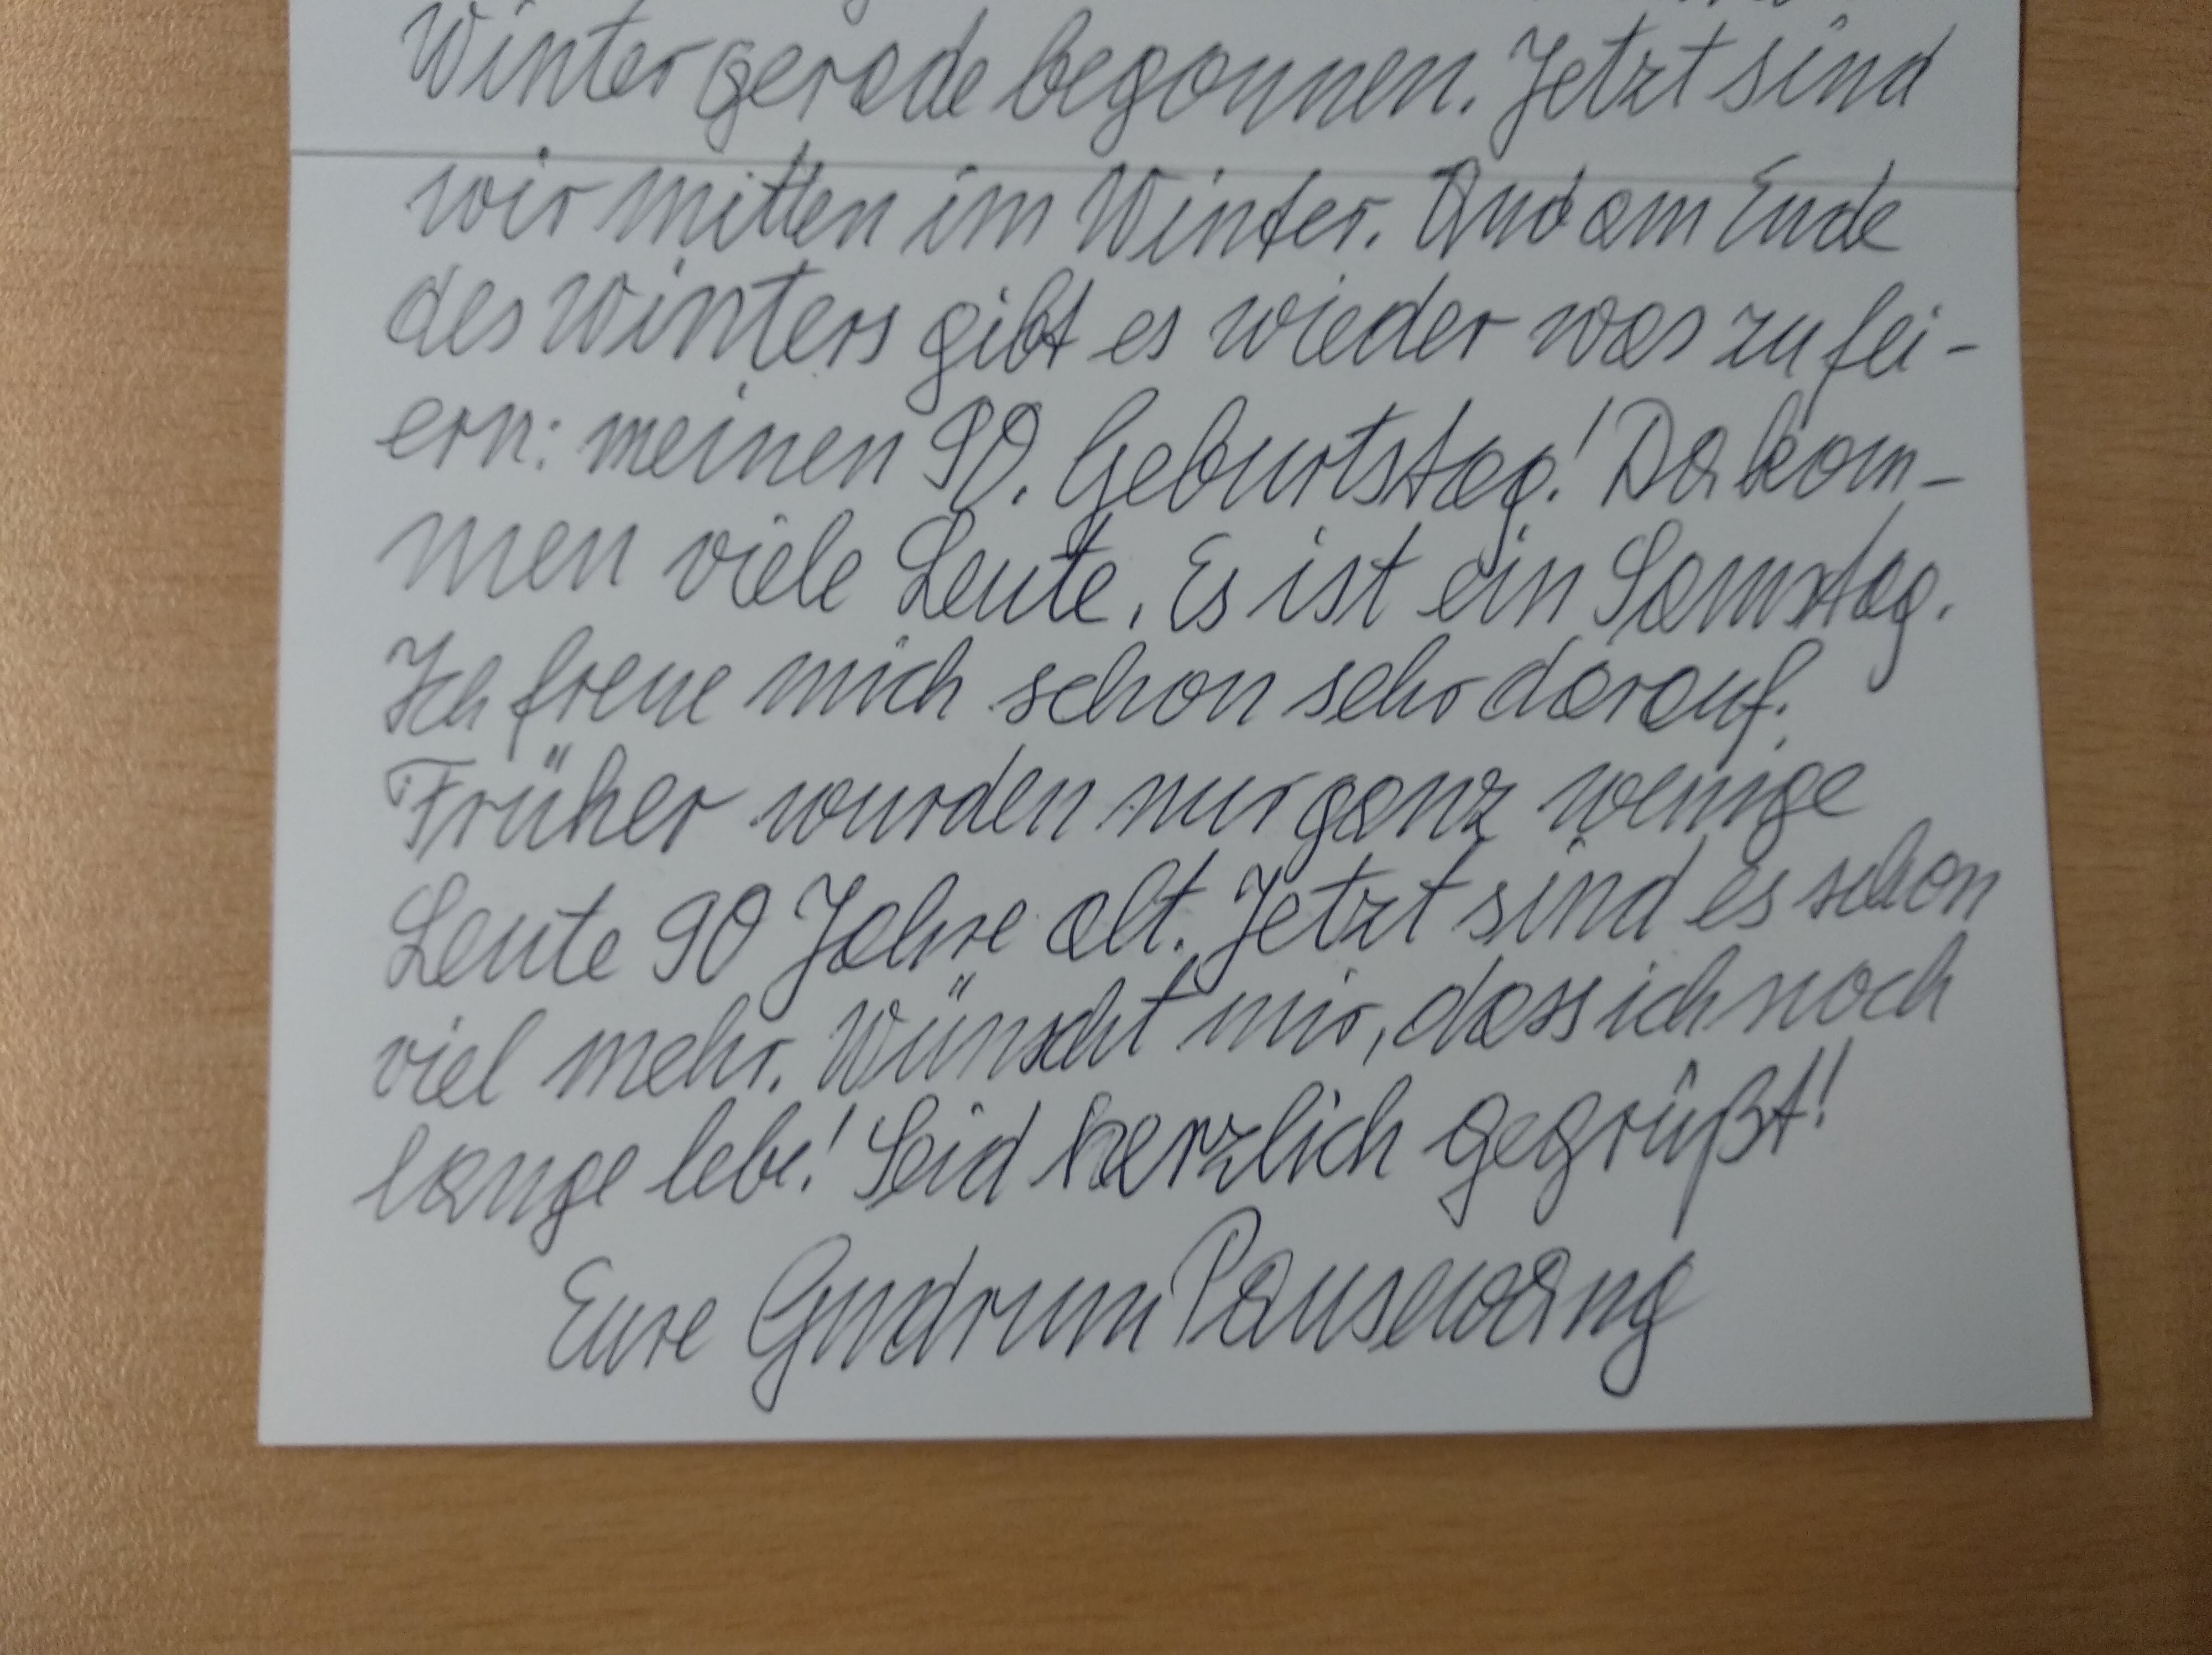 Winter gerade begonnen. Jetzt sind
wir mitten im Winter. Und am Ende
des Winters gibt es wieder was zu fei-
ern: meinen 90. Geburtstag! Da kom-
men viele Leute. Es ist ein Samstag.
Ich freue mich schon sehr darauf.
Früher wurden nur ganz wenige
Leute 90 Jahre alt. Jetzt sind es schon
viel mehr. Wünscht mir, dass ich noch
lange lebe! Seid herzlich gegrüßt!
Eure Gudrun Pausewang